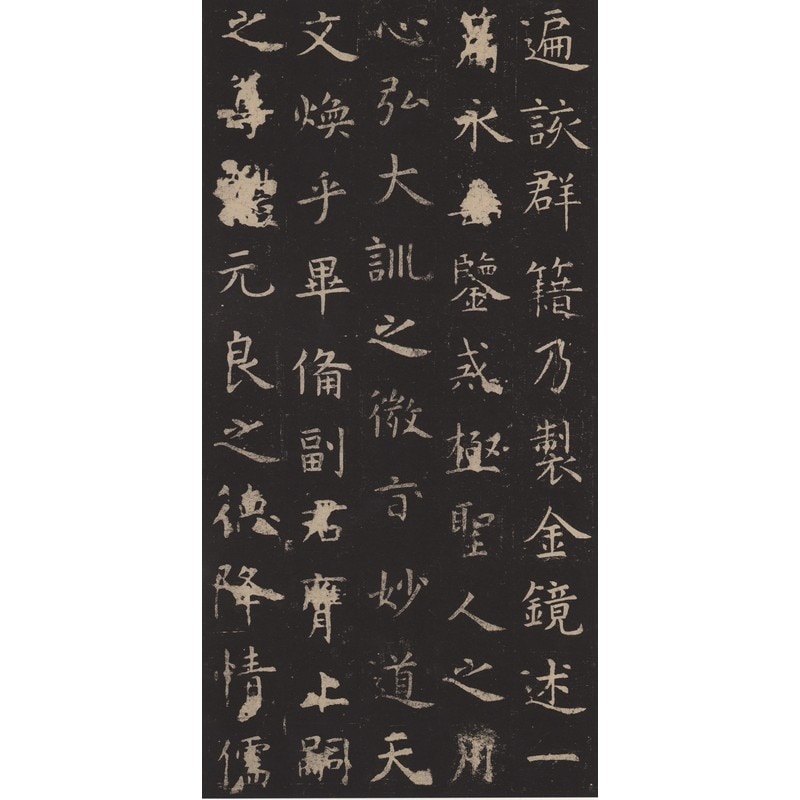 遍該群籍乃製金鏡述一
篇永垂鑒戒極聖人之用
心弘大訓之微旨妙道天
文煥乎畢備副君膺上嗣
之尊禮元良之德降情儒